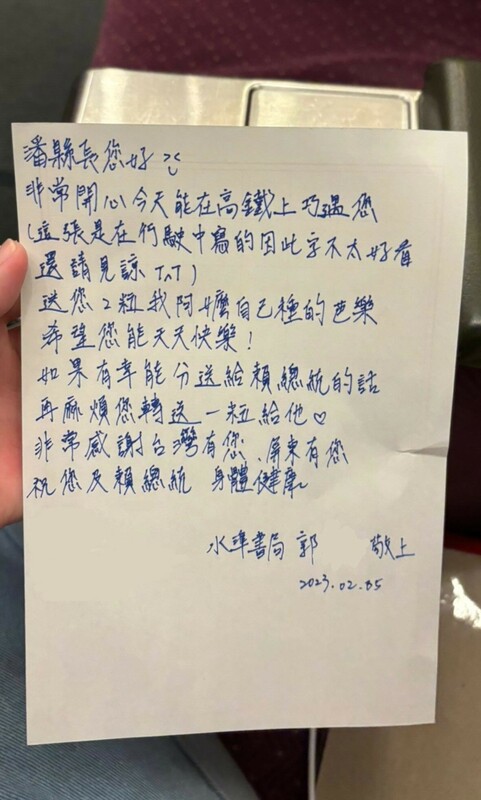 潘縣長您好 :)
非常開心今天能在高鐵上巧遇您
(這張是在行駛中寫的因此字不太好看
還請見諒 T^T)
送您2粒我阿嬤自己種的芭樂
希望您能天天快樂!
如果有幸能分送給賴總統的話
再麻煩您轉送一粒給他♡
非常感謝台灣有您、屏東有您
祝您及賴總統 身體健康
水準書局 郭 敬上
2023.02.05